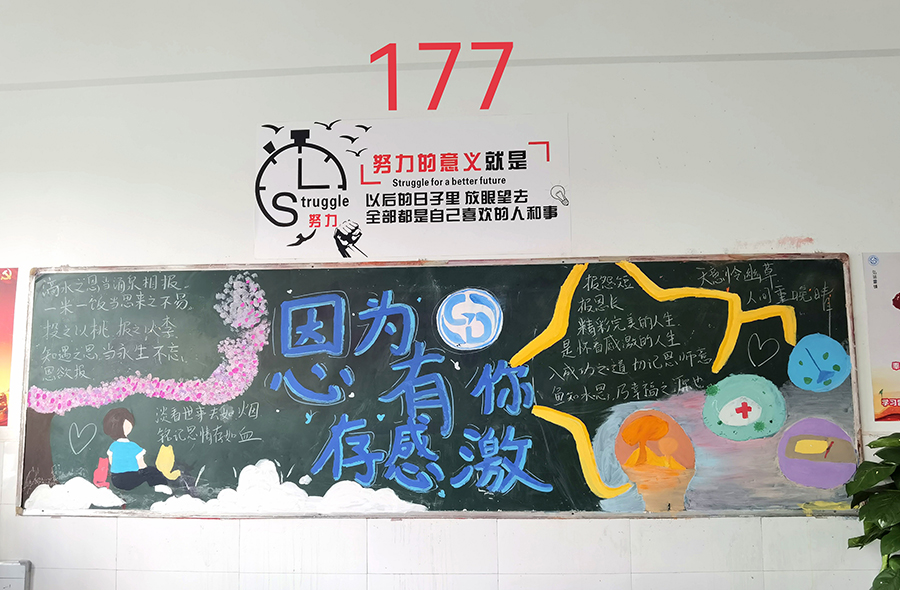 177
努力的意义就是
Struggle for a better future
Struggle
努力
以后的日子里 放眼望去
全部都是自己喜欢的人和事
滴水之恩当涌泉相报
一米一饭当思来之不易
投之以桃 报之以李
知遇之恩当永生不忘
淡看世事去如烟
铭记恩情存如血
因为有你
心存感激
SD
报怨短
报恩长
精彩完美的人生
是怀着感激的人生
入成功之道 切记恩师意
鱼知水恩，乃幸福之源也
天意怜幽草
人间重晚晴
学习